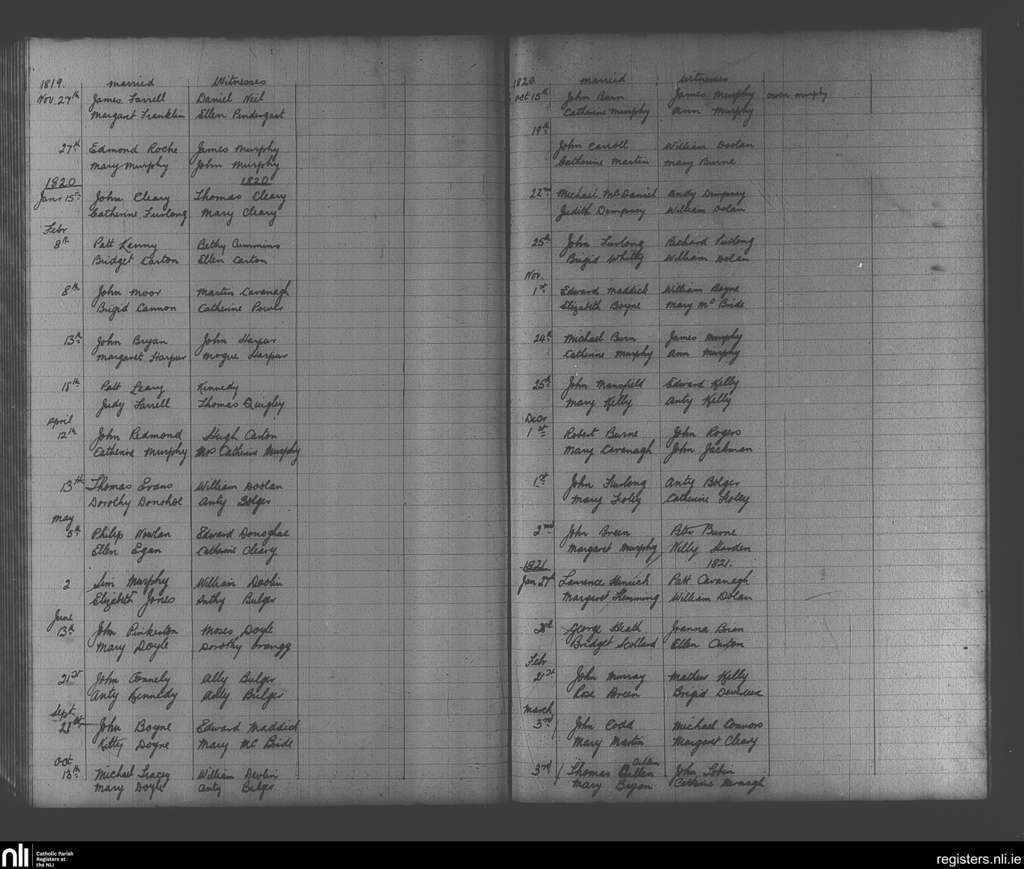 1819. married Witnesses
Nov. 27th James Farrell Daniel Neil
Margart Franklin Ellen Pendergast
27th Edmond Roche James Murphy
Mary Murphy John Murphy
1820 1820
Janr 15th John Cleary Thomas Cleary
Catherine Furlong Mary Cleary
Febr
8th Patt Kenny Bethy Cummins
Bridget Carton Ellen Carton
8th John Moor Martin Cavanagh
Brigid Cannon Catherine Power
13th John Bryan John Harpur
Margaret Harpur Mogue Harpur
18th Patt Leary Kennedy
Judy Farrell Thomas Quigley
April
12th John Redmond Hugh Carton
Catherine Murphy Mrs Catherine Murphy
13th Thomas Evans William Doolan
Dorothy Donohoe Anty Bolger
May
5th Philip Nowlan Edward Donoghoe
Ellen Egan Catherine Cleary
2 Jim Murphy William Doolin
Elizabeth Jones Anthy Bulger
June
13th John Pinkerton Moses Doyle
Mary Doyle Dorothy
21st John Connely Ally Bulger
Anty Kennedy Anty Bulger
Sept.
28th John Boyne Edward Maddick
Kitty Doyne Mary Mc Bride
Oct
13th Michael Tracey William Devlin
Mary Doyle Anty Bulger
1820. married witnesses
Oct 15th John Burn James Murphy owen murphy
Catherine Murphy Ann Murphy
19th
John Carroll William Doolan
Catherine Martin Mary Burne
22nd Michael McDaniel Andy Dempsey
Judith Dempsey William Dolan
25th John Furlong Richard Furlong
Brigid Whitty William Dolan
Nov.
1st Edward Maddick William Boyne
Elizabeth Boyne Mary Mc Bride
24th Michael Burn James Murphy
Catherine Murphy Ann Murphy
25th John Mansfield Edward Kelly
Mary Kelly Anty Kelly
Decr
1st Robert Burne John Rogers
Mary Cavanagh John Jackman
1st John Furlong Anty Bolger
Mary Foley Catherine Foley
2nd John Breen Peter Burne
Margaret Murphy Willy Harden
1821 1821.
Jan. 27th Lawrence Patt Cavanagh
Margaret Flemming William Dolan
28th George Heath Joanna Brien
Bridget Scollard Ellen Carton
Febr
21st John Murray Mathew Kelly
Rose Breen Brigid Devereux
March
3rd John Codd Michael Connors
Mary Martin Margaret Cleary
Cullen
3rd Thomas Cullen John Tobin
Mary Bryan Catherine
nli Catholic Parish
Registers at
the NLI
registers.nli.ie